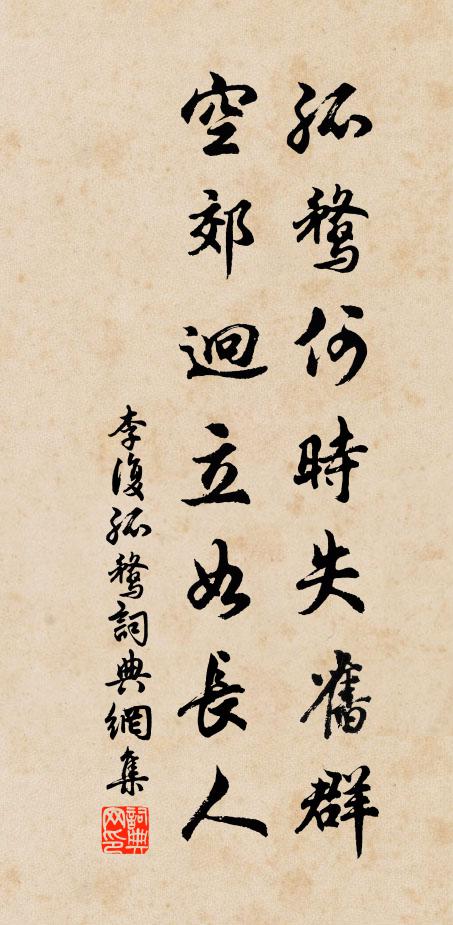 孤鶖何時失舊群
空郊迴立如長人
李復孤鶖詞典網集
詞典网印